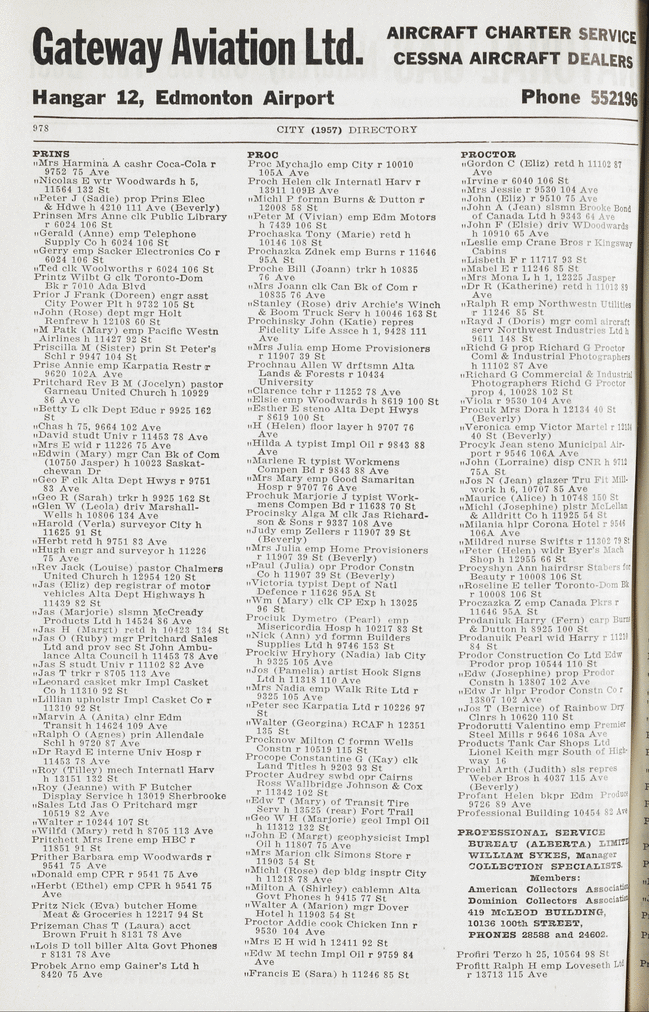 Gateway Aviation Ltd.
AIRCRAFT CHARTER SERVICE
CESSNA AIRCRAFT DEALERS
Hangar 12, Edmonton Airport
Phone 552196
978
CITY (1957) DIRECTORY
PRINS
„Mrs Harmina A cashr Coca-Cola r
9752 75 Ave
„Nicolas E wtr Woodwards h 5,
11564 132 St
„Peter J (Sadie) prop Prins Elec
& Hdwe h 4210 111 Ave (Beverly)
Prinsen Mrs Anne clk Public Library
r 6024 106 St
„Gerald (Anne) emp Telephone
Supply Co h 6024 106 St
„Gerry emp Sacker Electronics Co r
6024 106 St
„Ted clk Woolworths r 6024 106 St
Printz Wilbt G clk Toronto-Dom
Bk r 7010 Ada Blvd
Prior J Frank (Doreen) engr asst
City Power Plt h 9732 105 St
„John (Rose) dept mgr Holt
Renfrew h 12108 60 St
„M Patk (Mary) emp Pacific Westn
Airlines h 11427 92 St
Priscilla M (Sister) prin St Peter's
Schl r 9947 104 St
Prise Annie emp Karpatia Restr r
9620 102A Ave
Pritchard Rev B M (Jocelyn) pastor
Garneau United Church h 10929
86 Ave
„Betty L clk Dept Educ r 9925 162
St
„Chas h 75, 9664 102 Ave
„David studt Univ r 11453 78 Ave
„Mrs E wid r 11226 75 Ave
„Edwin (Mary) mgr Can Bk of Com
(10750 Jasper) h 10023 Saskat-
chewan Dr
„Geo F clk Alta Dept Hwys r 9751
83 Ave
„Geo R (Sarah) trkr h 9925 162 St
„Glen W (Leola) driv Marshall-
Wells h 10806 134 Ave
„Harold (Verla) surveyor City h
11625 91 St
„Herbt retd h 9751 83 Ave
„Hugh engr and surveyor h 11226
75 Ave
„Rev Jack (Louise) pastor Chalmers
United Church h 12954 120 St
„Jas (Eliz) dep registrar of motor
vehicles Alta Dept Highways h
11439 82 St
„Jas (Marjorie) slsmn McCready
Products Ltd h 14524 86 Ave
„Jas H (Margt) retd h 10423 134 St
„Jas O (Ruby) mgr Pritchard Sales
Ltd and prov sec St John Ambu-
lance Alta Council h 11453 78 Ave
„Jas S studt Univ r 11102 82 Ave
„Jas T trkr r 8705 113 Ave
„Leonard casket mkr Impl Casket
Co h 11310 92 St
„Lillian upholstr Impl Casket Co r
11310 92 St
„Marvin A (Anita) clnr Edm
Transit h 14624 109 Ave
„Ralph O (Agnes) prin Allendale
Schl h 9720 87 Ave
„Dr Rayd E interne Univ Hosp r
11453 78 Ave
„Roy (Tilley) mech Internatl Harv
h 13151 132 St
„Roy (Jeanne) with F Butcher
Display Service h 13019 Sherbrooke
„Sales Ltd Jas O Pritchard mgr
10519 82 Ave
„Walter r 10244 107 St
„Wilfd (Mary) retd h 8705 113 Ave
Pritchett Mrs Irene emp HBC r
11851 91 St
Prither Barbara emp Woodwards r
9541 75 Ave
„Donald emp CPR r 9541 75 Ave
„Herbt (Ethel) emp CPR h 9541 75
Ave
Pritz Nick (Eva) butcher Home
Meat & Groceries h 12217 94 St
Prizeman Chas T (Laura) acct
Brown Fruit h 8131 78 Ave
„Lois D toll biller Alta Govt Phones
r 8131 78 Ave
Probek Arno emp Gainer's Ltd h
8420 75 Ave
PROC
Proc Mychajlo emp City r 10010
105A Ave
Proch Helen clk Internatl Harv r
13911 109B Ave
„Michl P formn Burns & Dutton r
12008 58 St
„Peter M (Vivian) emp Edm Motors
h 7439 106 St
Prochaska Tony (Marie) retd h
10146 108 St
Prochazka Zdnek emp Burns r 11646
95A St
Proche Bill (Joann) trkr h 10835
76 Ave
„Mrs Joann clk Can Bk of Com r
10835 76 Ave
„Stanley (Rose) driv Archie's Winch
& Boom Truck Serv h 10046 163 St
Prochinsky John (Katie) repres
Fidelity Life Assce h 1, 9428 111
Ave
„Mrs Julia emp Home Provisioners
r 11907 39 St
Prochnau Allen W drftsmn Alta
Lands & Forests r 10434
University
„Clarence tchr r 11252 78 Ave
„Elsie emp Woodwards h 8619 100 St
„Esther E steno Alta Dept Hwys
r 8619 100 St
„H (Helen) floor layer h 9707 76
Ave
„Hilda A typist Impl Oil r 9843 88
Ave
„Marlene R typist Workmens
Compen Bd r 9843 88 Ave
„Mrs Mary emp Good Samaritan
Hosp r 9707 76 Ave
Prochuk Marjorie J typist Work-
mens Compen Bd r 11638 70 St
Procinsky Alga M clk Jas Richard-
son & Sons r 9337 108 Ave
„Judy emp Zellers r 11907 39 St
(Beverly)
„Mrs Julia emp Home Provisioners
r 11907 39 St (Beverly)
„Paul (Julia) opr Prodor Constn
Co h 11907 39 St (Beverly)
„Victoria typist Dept of Natl
Defence r 11626 95A St
„Wm (Mary) clk CP Exp h 13025
96 St
Prociuk Dymetro (Pearl) emp
Misericordia Hosp h 10217 83 St
„Nick (Ann) yd formn Builders
Supplies Ltd h 9746 153 St
Prockiw Hryhory (Nadia) lab City
h 9325 105 Ave
„Jos (Pamelia) artist Hook Signs
Ltd h 11318 110 Ave
„Mrs Nadia emp Walk Rite Ltd r
9325 105 Ave
„Peter sec Karpatia Ltd r 10226 97
St
„Walter (Georgina) RCAF h 12351
135 St
Procknow Milton C formn Wells
Constn r 10519 115 St
Procope Constantine G (Kay) clk
Land Titles h 9203 93 St
Procter Audrey swbd opr Cairns
Ross Wallbridge Johnson & Cox
r 11342 102 St
„Edw T (Mary) of Transit Tire
Serv h 13525 (rear) Fort Trail
„Geo W H (Marjorie) geol Impl Oil
h 11312 132 St
„John E (Margt) geophysicist Impl
Oil h 11807 75 Ave
„Mrs Marion clk Simons Store r
11903 54 St
„Michl (Rose) dep bldg insptr City
h 11218 78 Ave
„Milton A (Shirley) cablemn Alta
Govt Phones h 9415 77 St
„Walter A (Marion) mgr Dover
Hotel h 11903 54 St
Proctor Addie cook Chicken Inn r
9530 104 Ave
„Mrs E H wid h 12411 92 St
„Edw M techn Impl Oil r 9759 84
Ave
„Francis E (Sara) h 11246 85 St
PROCTOR
„Gordon C (Eliz) retd h 11102 87
Ave
„Irvine r 6040 106 St
„Mrs Jessie r 9530 104 Ave
„John (Eliz) r 9510 75 Ave
„John A (Jean) slsmn Brooke Bond
of Canada Ltd h 9343 64 Ave
„John F (Elsie) driv WDoodwards
h 10910 65 Ave
„Leslie emp Crane Bros r Kingsway
Cabins
„Lisbeth F r 11717 93 St
„Mabel E r 11246 85 St
„Mrs Mona L h 1, 12325 Jasper
„Dr R (Katherine) retd h 11013 89
Ave
„Ralph R emp Northwestn Utilities
r 11246 85 St
„Rayd J (Doris) mgr coml aircraft
serv Northwest Industries Ltd h
9611 148 St
„Richd G prop Richard G Proctor
Coml & Industrial Photographers
h 11102 87 Ave
„Richard G Commercial & Industrial
Photographers Richd G Proctor
prop 4, 10028 102 St
„Viola r 9530 104 Ave
Procuk Mrs Dora h 12134 40 St
(Beverly)
„Veronica emp Victor Martel r
40 St (Beverly)
Procyk Jean steno Municipal Air-
port r 9546 106A Ave
„John (Lorraine) disp CNR h 9712
75A St
„Jos N (Jean) glazer Tru Fit Mill-
work h 6, 10707 85 Ave
„Maurice (Alice) h 10748 150 St
„Michl (Josephine) plstr McLellan
& Alldritt Co h 11925 54 St
„Milania hlpr Corona Hotel r 9546
106A Ave
„Mildred nurse Swifts r 11302 79 St
„Peter (Helen) wldr Byer's Mach
Shop h 12955 66 St
Procyshyn Ann hairdrsr Stabers for
Beauty r 10008 106 St
„Roseline E teller Toronto-Dom Bk
r 10008 106 St
Proczazka Z emp Canada Pkrs r
11646 95A St
Prodaniuk Harry (Fern) carp Burns
& Dutton h 8925 100 St
Prodanuik Pearl wid Harry r
84 St
Prodor Construction Co Ltd Edw
Prodor prop 10544 110 St
„Edw (Josephine) prop Prodor
Constn h 13807 102 Ave
„Edw Jr hlpr Prodor Constn Co r
13807 102 Ave
„Jos T (Bernice) of Rainbow Dry
Clnrs h 10620 110 St
Prodorutti Valentino emp Premier
Steel Mills r 9646 108a Ave
Products Tank Car Shops Ltd
Lionel Keith mgr South of High-
way 16
Proehl Arth (Judith) sls repres
Weber Bros h 4037 115 Ave
(Beverly)
Profant Helen bkpr Edm Produce
9726 89 Ave
Professional Building 10454 82 Ave
PROFESSIONAL SERVICE
BUREAU (ALBERTA) LIMITE
WILLIAM SYKES, Manager
COLLECTION SPECIALISTS.
Members:
American Collectors Association
Dominion Collectors Association
419 McLEOD BUILDING,
10136 100th STREET,
PHONES 28588 and 24602.
Profiri Terzo h 25, 10564 98 St
Profitt Ralph H emp Loveseth Ltd
r 13713 115 Ave